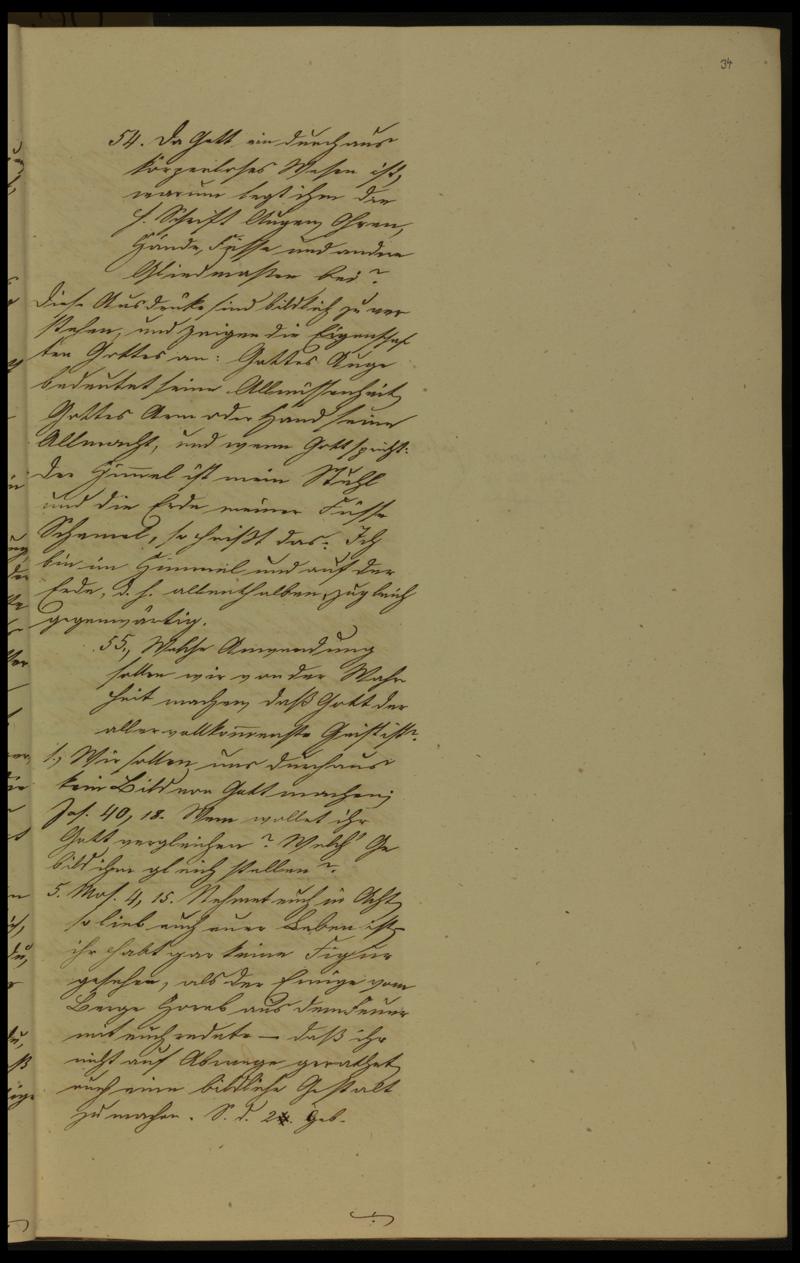 34
54. Da Gott ein durchaus
körperloses Wesen ist,
warum legt ihm die
h. Schrift Augen, Ohren,
Hände, Füsse und andere
Gliedmaßen bei?
Diese Ausdrücke sind bildlich zu ver
stehen, und zeigen die Eigenschaf
ten Gottes an: Gottes Auge
bedeutet seine Allwissenheit,
Gottes Arm oder Hand seine
Allmacht, und wenn Gott spricht:
Der Himmel ist mein Stuhl
und die Erde meiner Füsse
Schemel, so heißt das: Ich
bin im Himmel und auf der
Erde, d. h. allenthalben zugleich
gegenwärtig.
55., Welche Anwendung
sollen wir von der Wahr
heit machen, daß Gott der
allervollkommenste Geist ist?
1., Wir sollen uns durchaus
kein Bild von Gott machen;
Jes. 40, 18. Wem wollet ihr
Gott vergleichen? Welch' Ge
bild ihm gleich stellen?
5. Mos. 4, 15. Nehmet euch in Acht,
so lieb euch euer Leben ist,
ihr habt gar keine Figur
gesehen, als der Ewige vom
Berge Horeb aus dem Feuer
mit euch redete — daß ihr
nicht auf Abwege gerathet,
euch eine bildliche Gestalt
zu machen. S. d. 2. Geb.